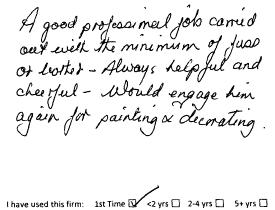 A good professional job carried
out with the minimum of fuss
or bother - Always helpful and
cheerful - Would engage him
again for painting & decorating.
I have used this firm: 1st Time ☑ <2 yrs ☐ 2-4 yrs ☐ 5+ yrs ☐